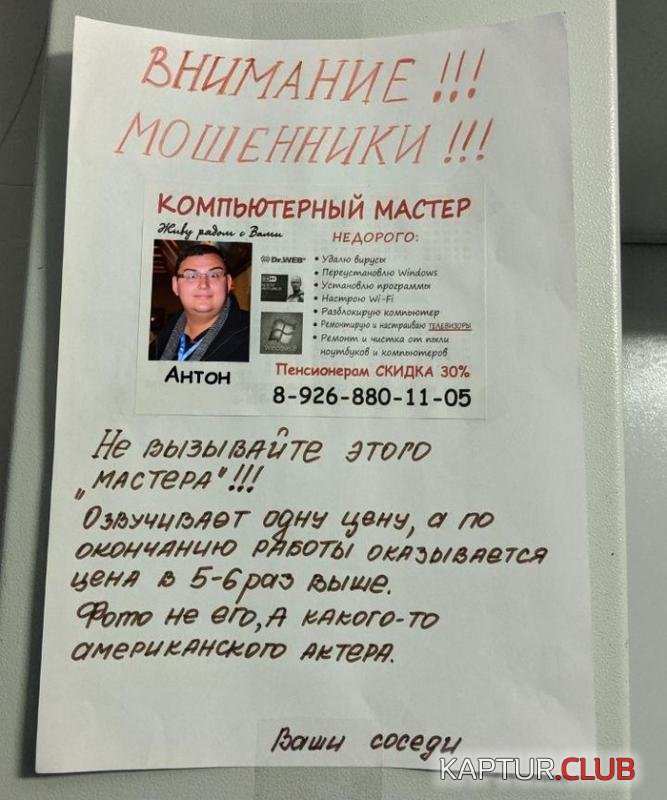 ВНИМАНИЕ !!!
МОШЕННИКИ !!!
КОМПЬЮТЕРНЫЙ МАСТЕР
Живу рядом с Вами
НЕДОРОГО:
Dr.WEB®
• Удалю вирусы
• Переустановлю Windows
• Установлю программы
• Настрою Wi-Fi
• Разблокирую компьютер
• Ремонтирую и настраиваю ТЕЛЕВИЗОРЫ
• Ремонт и чистка от пыли
ноутбуков и компьютеров
Антон
Пенсионерам СКИДКА 30%
8-926-880-11-05
Не вызывайте этого
„мастера"!!!
Озвучивает одну цену, а по
окончанию работы оказывается
цена в 5-6 раз выше.
Фото не его, а какого-то
американского актера.
Ваши соседи
KAPTUR.CLUB